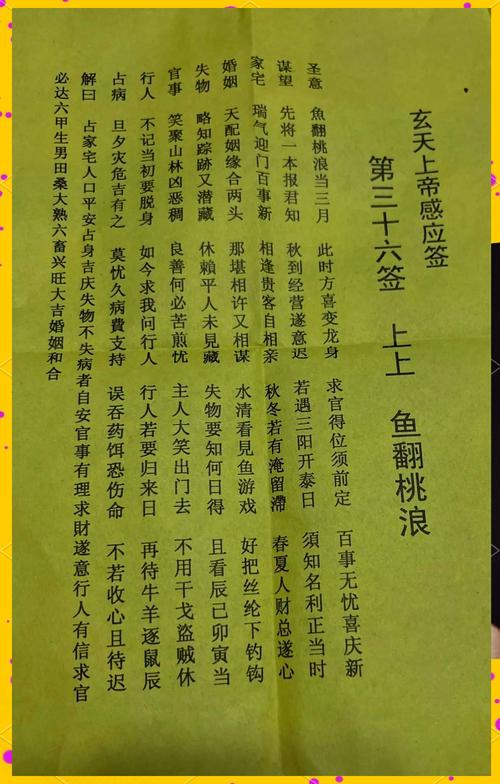 玄天上帝感应签
第三十六签 上上 鱼翻桃浪
圣意 魚翻桃浪当三月 此时方喜变龙身 求官得位须前定 百事无忧喜庆新
谋望 先将一本报君知 秋到经营遂意迟 若遇三阳开泰日 須知名利正当时
家宅 瑞气迎门百事新 相逢贵客自相亲 秋冬若有淹留滯 春夏人财总遂心
婚姻 天配姻缘合两头 那堪相许又相谋 水清看見鱼游戏 好把丝纶下钓钩
失物 略知踪跡又潜藏 休賴平人未見藏 失物要知何日得 且看辰己卯寅当
官事 笑聚山林凶恶稠 良善何必苦煎忧 主人大笑出门去 不用干戈盜贼休
行人 不记当初要脱身 如今求我问行人 行人若要归来日 再待牛羊逐鼠辰
占病 旦夕灾危吉有之 莫忧久病費支持 误吞药饵恐伤命 不若收心且待迟
解曰 占家宅人口平安占身吉庆失物不失病者自安官事有理求財遂意行人有信求官
必达六甲生男田桑大熟六畜兴旺大吉婚姻和合